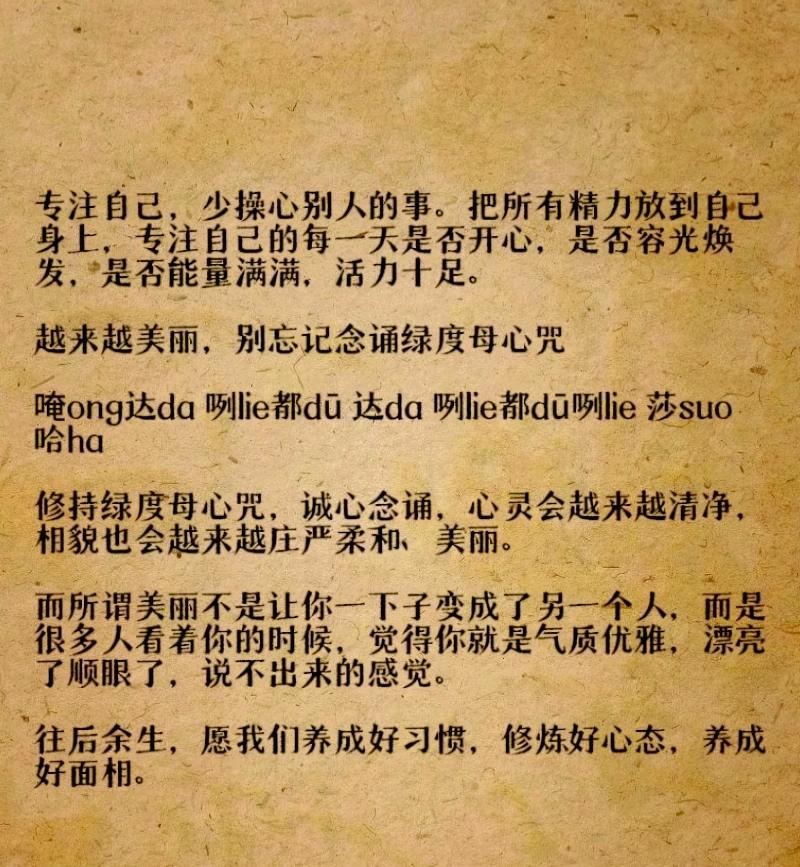 专注自己，少操心别人的事。把所有精力放到自己
身上，专注自己的每一天是否开心，是否容光焕
发，是否能量满满，活力十足。
越来越美丽，别忘记念诵绿度母心咒
唵ong达da 咧lie都dū 达da 咧lie都dū咧lie 莎suo
哈ha
修持绿度母心咒，诚心念诵，心灵会越来越清净，
相貌也会越来越庄严柔和、美丽。
而所谓美丽不是让你一下子变成了另一个人，而是
很多人看着你的时候，觉得你就是气质优雅，漂亮
了顺眼了，说不出来的感觉。
往后余生，愿我们养成好习惯，修炼好心态，养成
好面相。